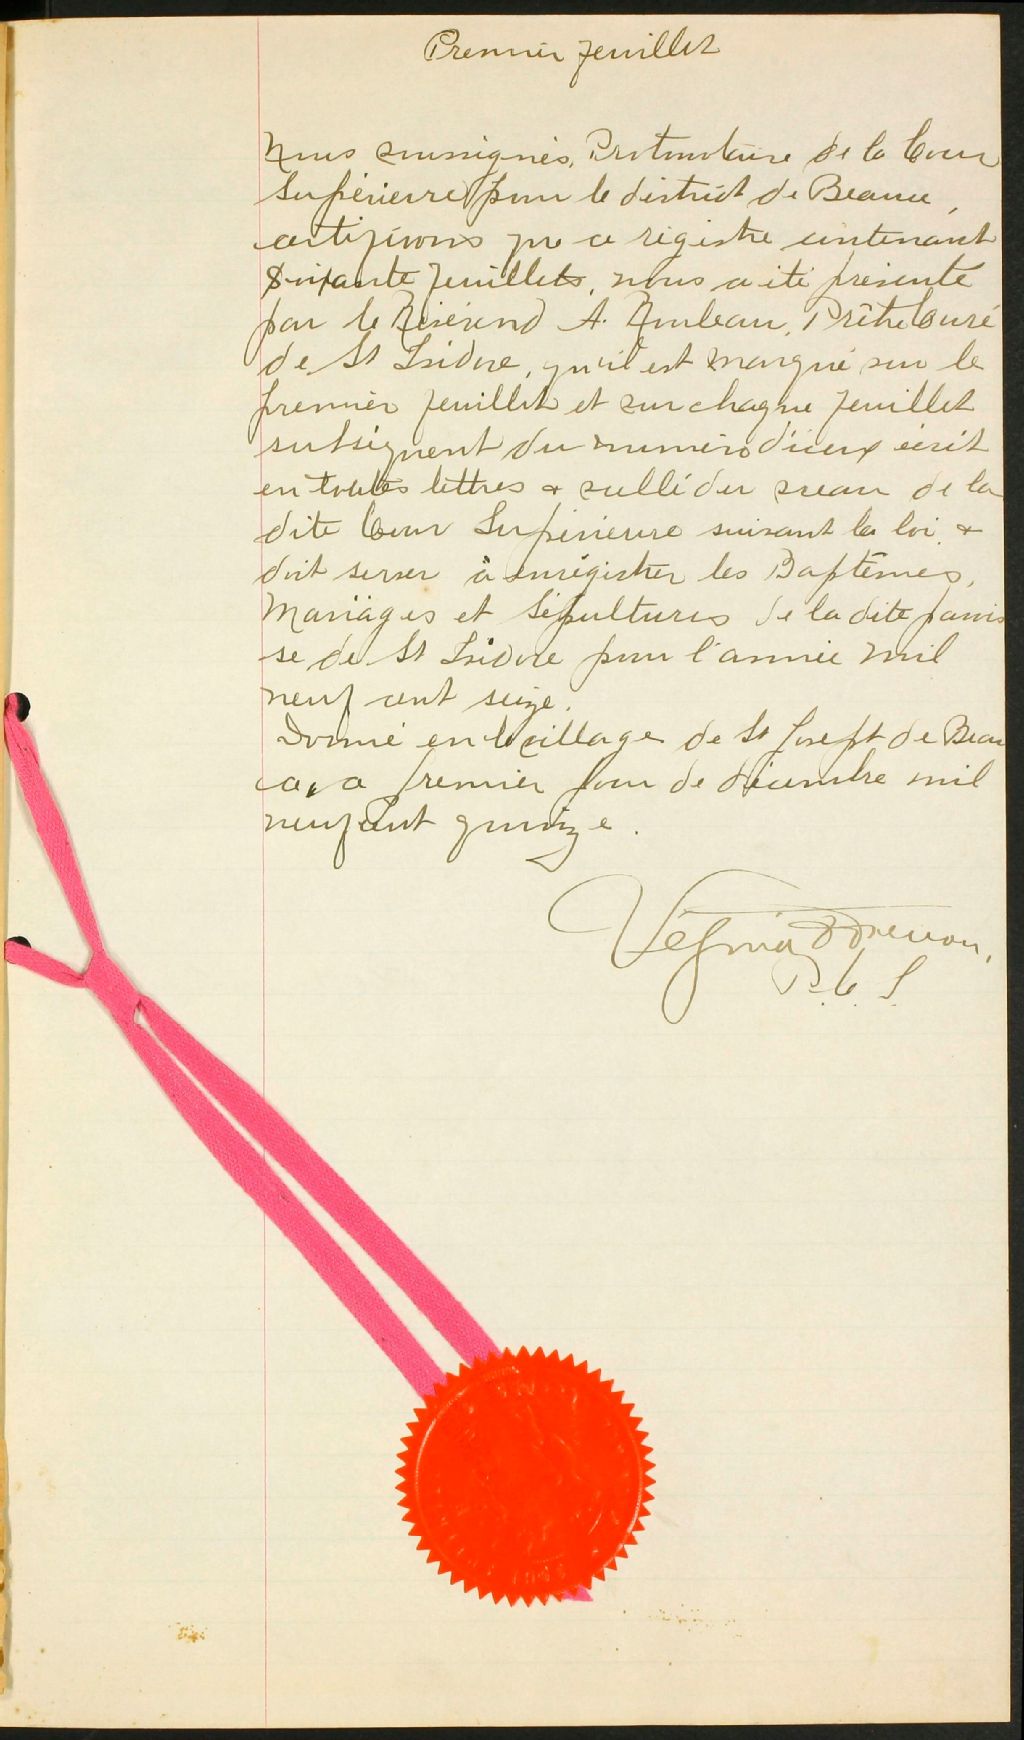 Premier feuillet
Nous soussignés, Protonotaire de la Cour
Supérieure pour le district de Beauce,
certifions que ce régistre contenant
Soixante feuillets, nous a été présenté
par le Révérend A. Nouleau, Prêtre Curé
de St Isidore, qu'il est marqué sur le
premier feuillet et sur chaque feuillet
subséquent du numéro d'iceux écrit
en toutes lettres & scellé du sceau de la
dite Cour Supérieure suivant la loi, &
doit servir à enrégistrer les Baptêmes,
Mariages et Sépultures de la dite parois
se de St Isidore pour l'année mil
neuf cent seize.
Donné en le village de St Joseph de Beau
ce, ce premier jour de décembre mil
neuf cent quinze.
P. C. S.